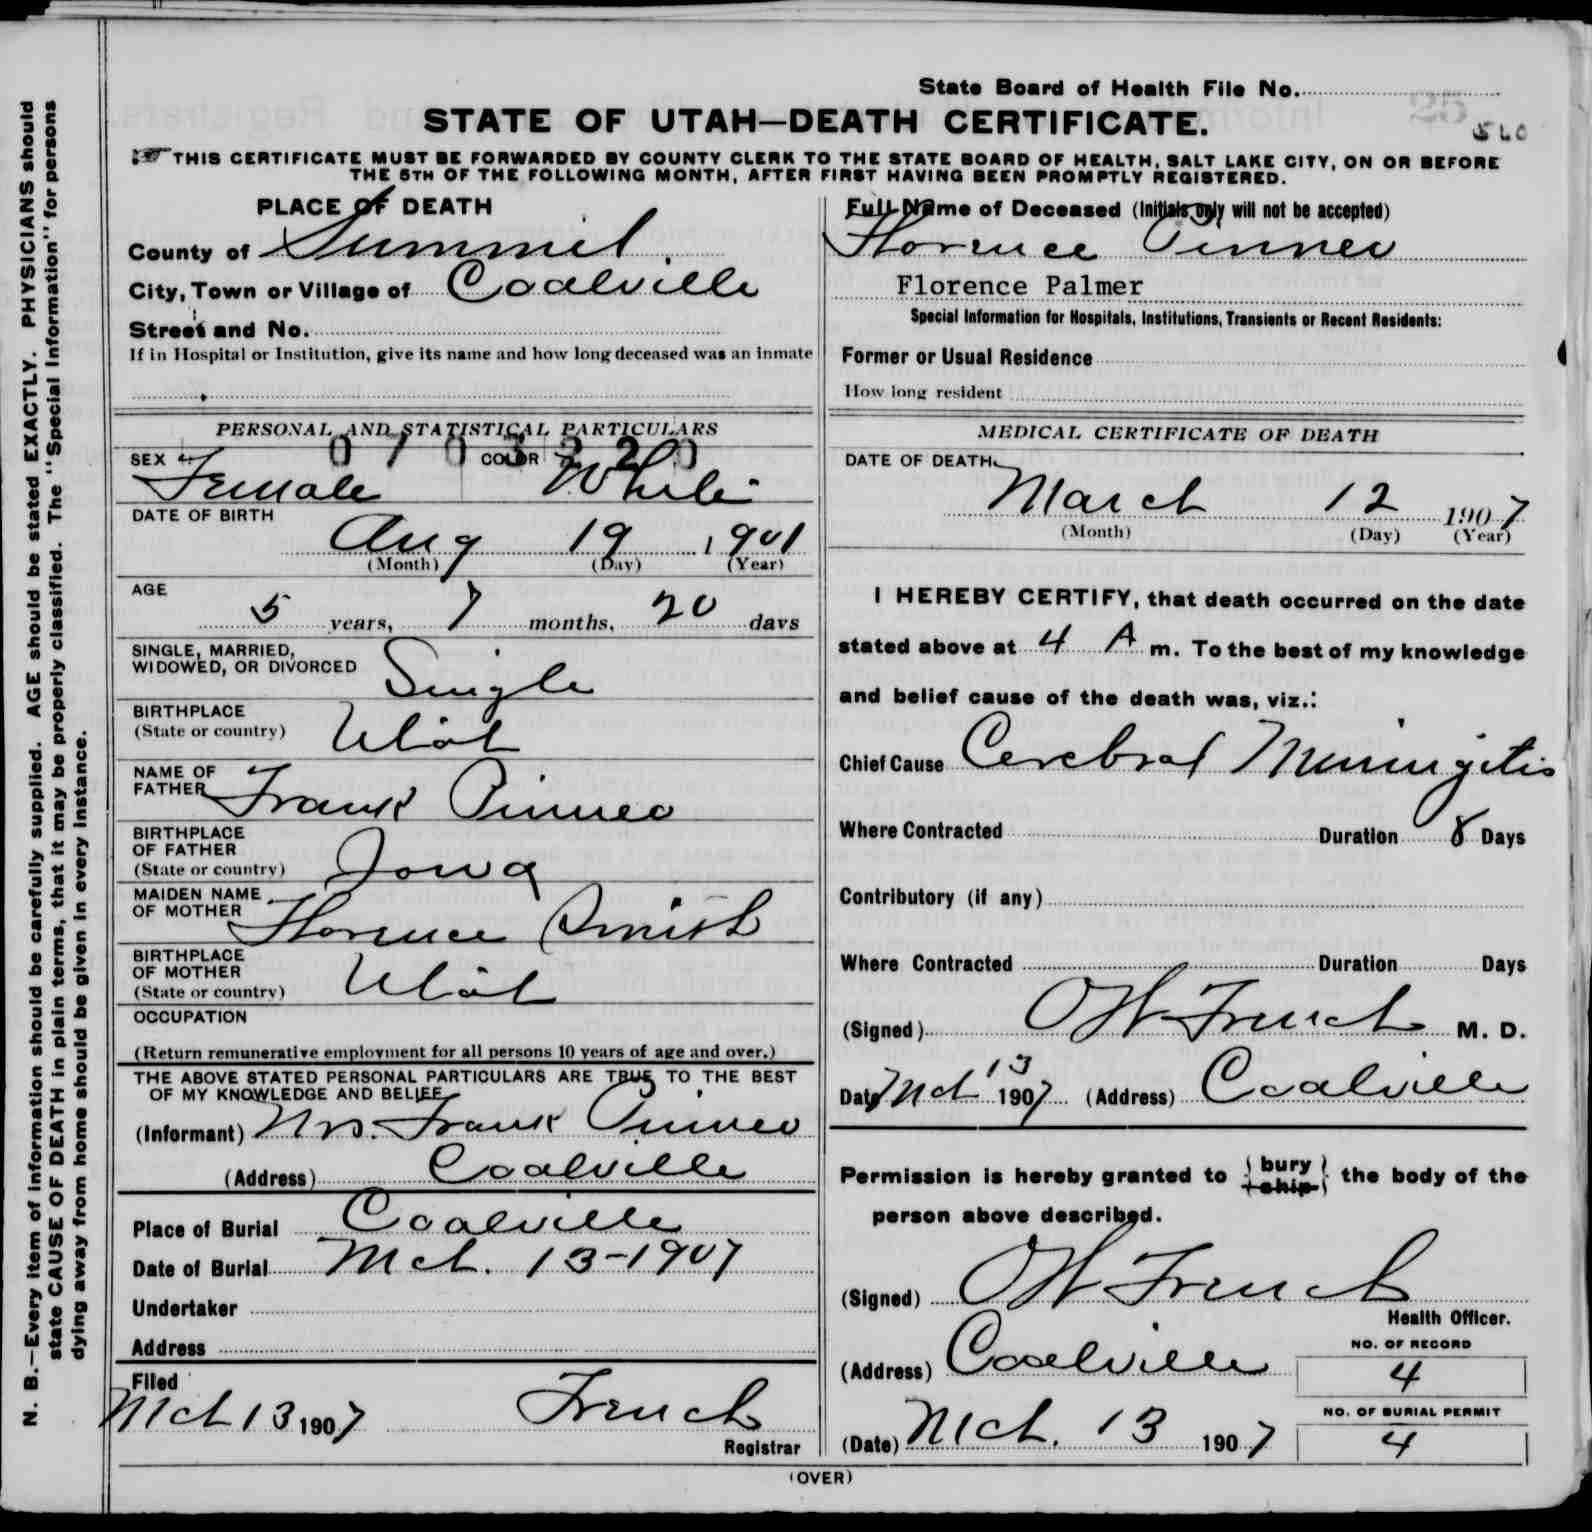 State Board of Health File No.
25
560
STATE OF UTAH—DEATH CERTIFICATE.
THIS CERTIFICATE MUST BE FORWARDED BY COUNTY CLERK TO THE STATE BOARD OF HEALTH, SALT LAKE CITY, ON OR BEFORE
THE 5TH OF THE FOLLOWING MONTH, AFTER FIRST HAVING BEEN PROMPTLY REGISTERED.
N. B.—Every item of information should be carefully supplied. AGE should be stated EXACTLY. PHYSICIANS should
state CAUSE OF DEATH in plain terms, that it may be properly classified. The "Special Information" for persons
dying away from home should be given in every instance.
PLACE OF DEATH
County of Summit
City, Town or Village of Coalville
Street and No.
If in Hospital or Institution, give its name and how long deceased was an inmate
PERSONAL AND STATISTICAL PARTICULARS
0703220
SEX Female COLOR White
DATE OF BIRTH
Aug 19 1901
(Month) (Day) (Year)
AGE
5 years, 7 months, 20 days
SINGLE, MARRIED,
WIDOWED, OR DIVORCED Single
BIRTHPLACE
(State or country) Utah
NAME OF
FATHER Frank Pinneo
BIRTHPLACE
OF FATHER
(State or country) Iowa
MAIDEN NAME
OF MOTHER Florence Smith
BIRTHPLACE
OF MOTHER
(State or country) Utah
OCCUPATION
(Return remunerative employment for all persons 10 years of age and over.)
THE ABOVE STATED PERSONAL PARTICULARS ARE TRUE TO THE BEST
OF MY KNOWLEDGE AND BELIEF
(Informant) Mrs. Frank Pinneo
(Address) Coalville
Place of Burial Coalville
Date of Burial Mch. 13-1907
Undertaker
Address
Filed
Mch 13 1907 French
Registrar
Full Name of Deceased (Initials only will not be accepted)
Florence Pinneo
Florence Palmer
Special Information for Hospitals, Institutions, Transients or Recent Residents:
Former or Usual Residence
How long resident
MEDICAL CERTIFICATE OF DEATH
DATE OF DEATH
March 12 1907
(Month) (Day) (Year)
I HEREBY CERTIFY, that death occurred on the date
stated above at 4 A m. To the best of my knowledge
and belief cause of the death was, viz.:
Chief Cause Cerebral Meningitis
Where Contracted Duration 8 Days
Contributory (if any)
Where Contracted Duration Days
(Signed) OW French M. D.
Date Mch 13 1907 (Address) Coalville
Permission is hereby granted to bury ship the body of the
person above described.
(Signed) OW French
Health Officer.
(Address) Coalville
NO. OF RECORD
4
NO. OF BURIAL PERMIT
4
(Date) Mch. 13 1907
(OVER)